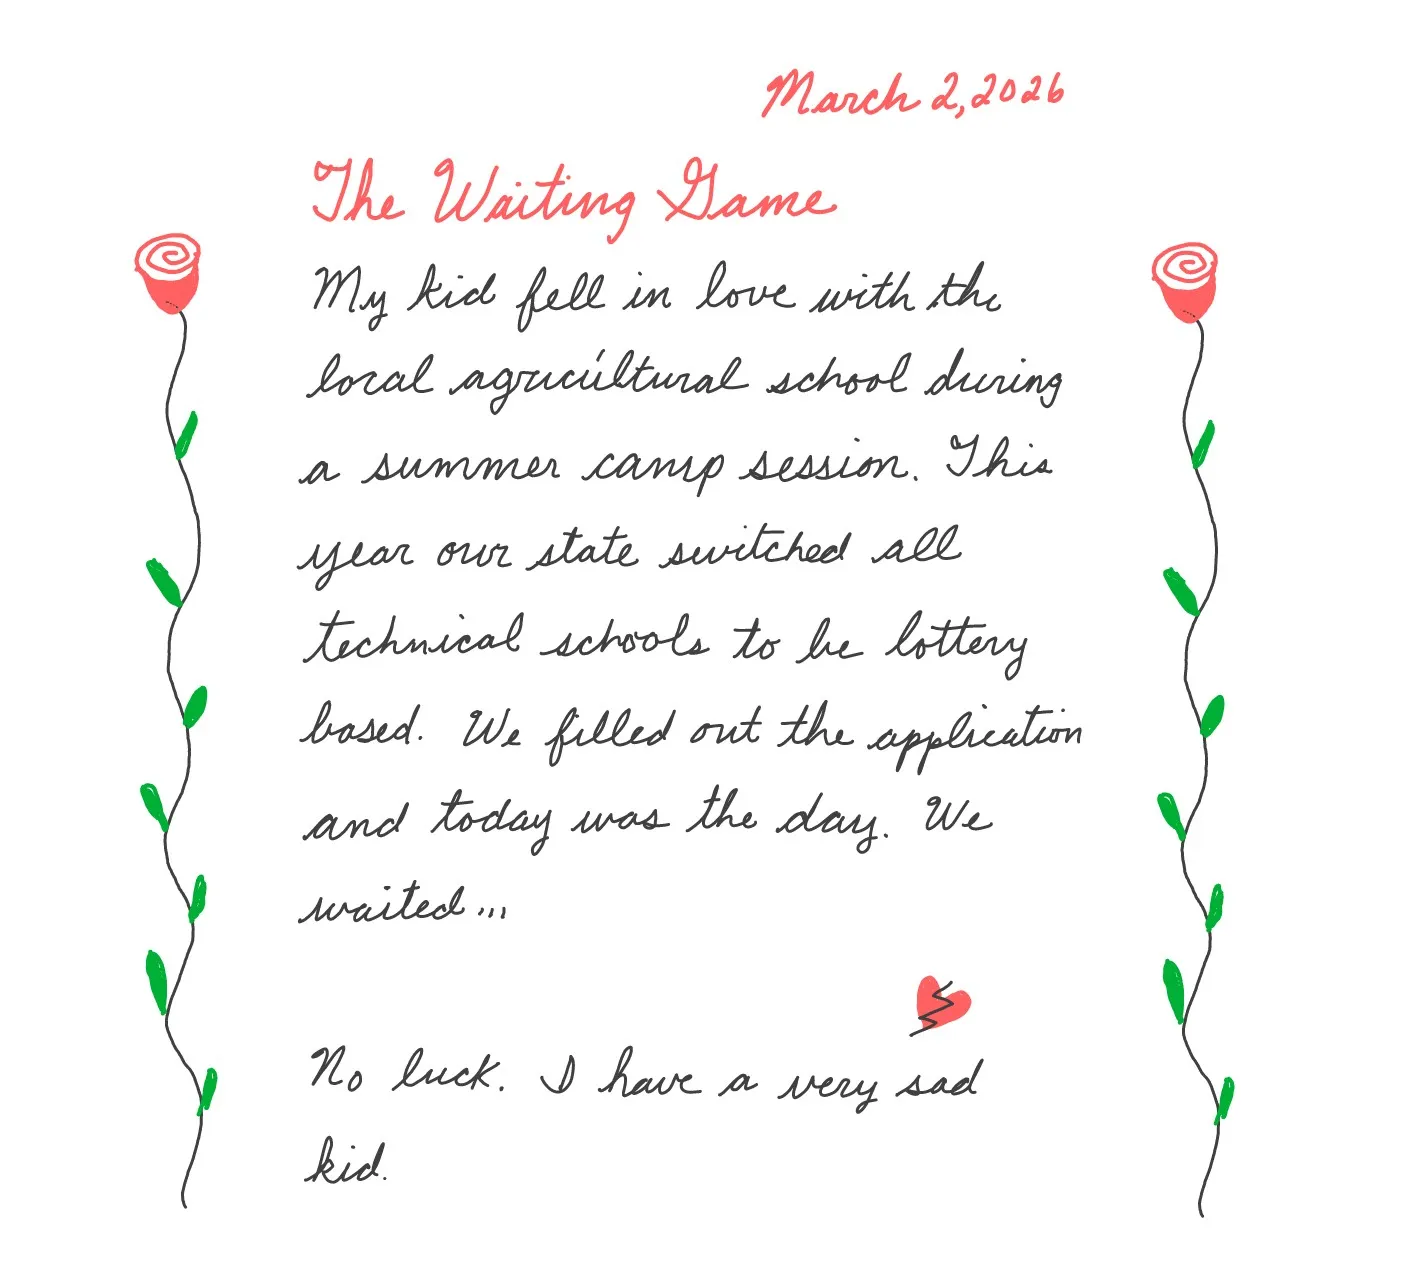 March 2, 2026
The Waiting Game
My kid fell in love with the
local agricultural school during
a summer camp session. This
year our state switched all
technical schools to be lottery
based. We filled out the application
and today was the day. We
waited...
No luck. I have a very sad
kid.